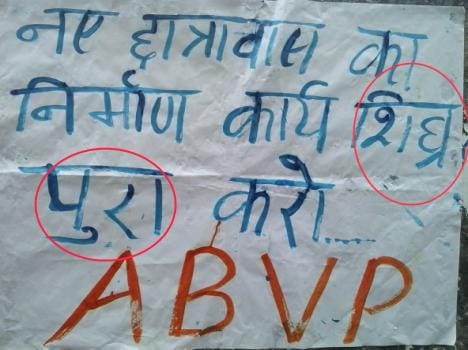 नए छात्रावास का
निर्माण कार्य शिघ्र
पुरा करो.....
ABVP